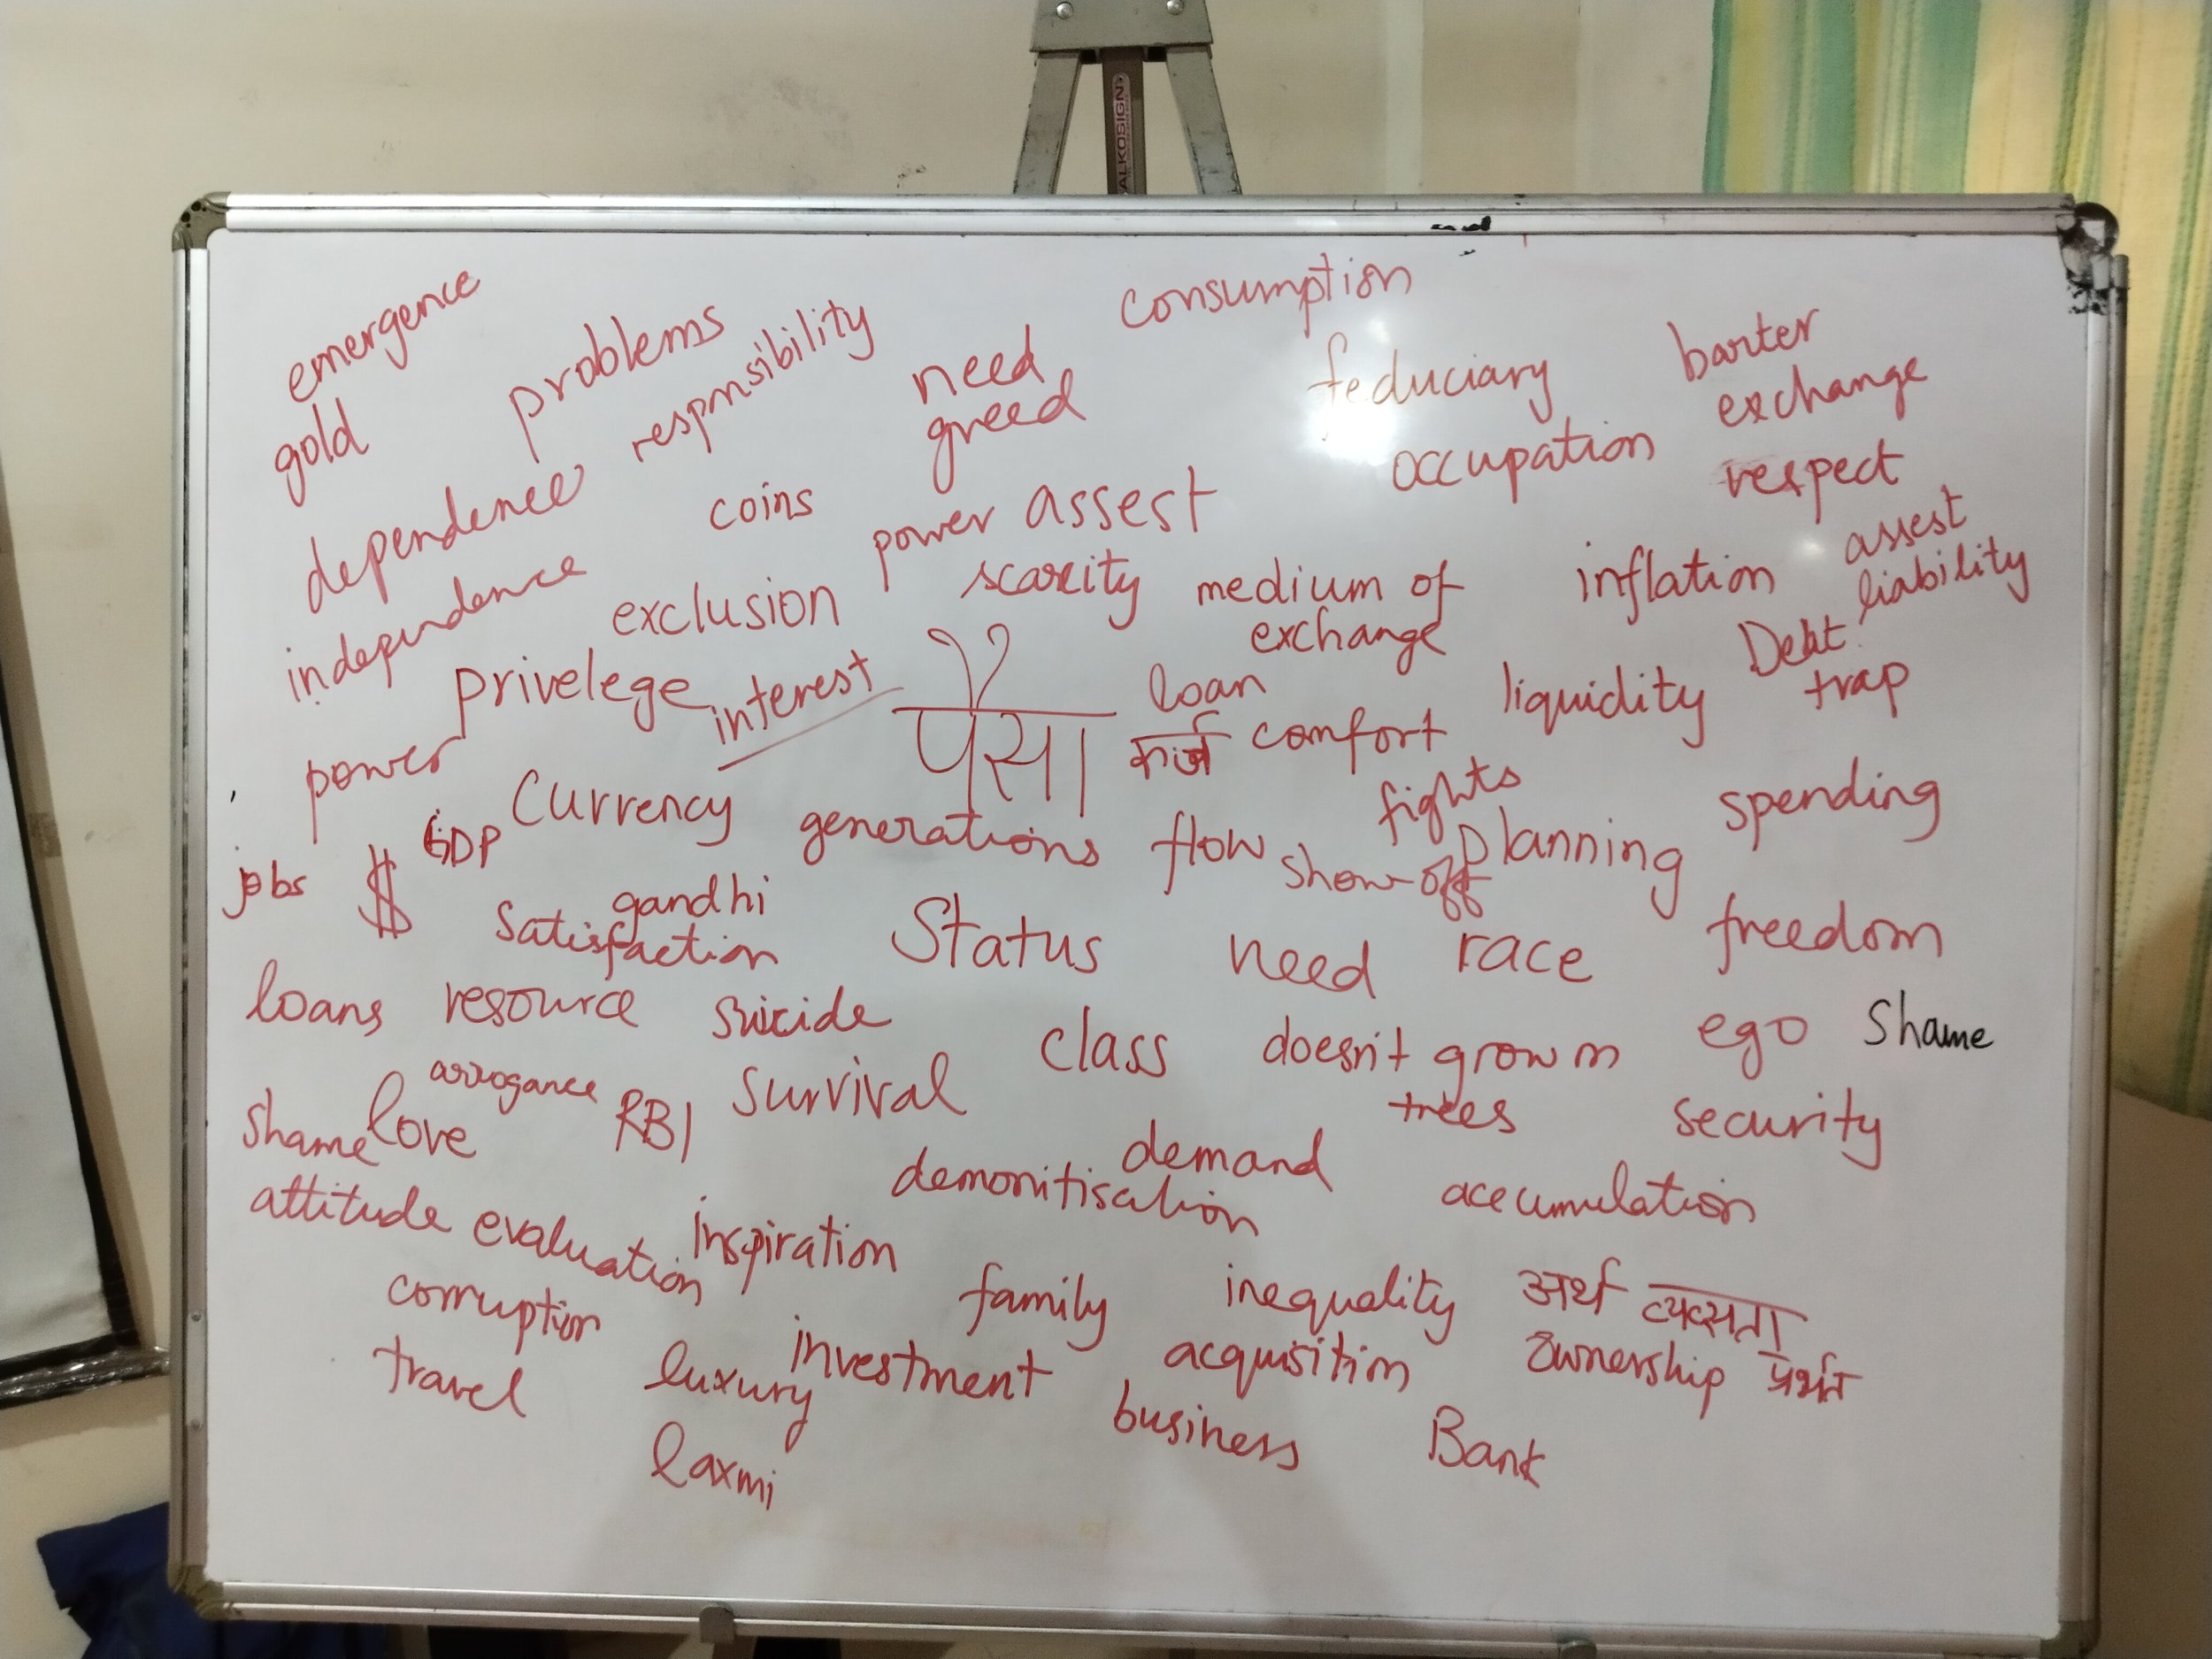 ALKOSIGN
emergence
consumption
problems
responsibility
need
greed
feduciary
barter
exchange
gold
occupation
respect
dependence
coins
power assest
independence
exclusion
scarcity
medium of
exchange
inflation
assest
liability
privelege
interest
पैसा
loan
कर्ज
comfort
liquidity
Debt
trap
power
currency
GDP
generations
flow
fights
show-off
planning
spending
jobs
$
gandhi
satisfaction
Status
need
race
freedom
loans
resource
suicide
class
doesn't grow on
trees
ego
Shame
arrogance
shame
love
RBI
survival
security
demand
demonitisation
accumulation
attitude
evaluation
inspiration
corruption
family
inequality
अर्थ
travel
luxury
investment
acquisition
ownership
laxmi
business
Bank